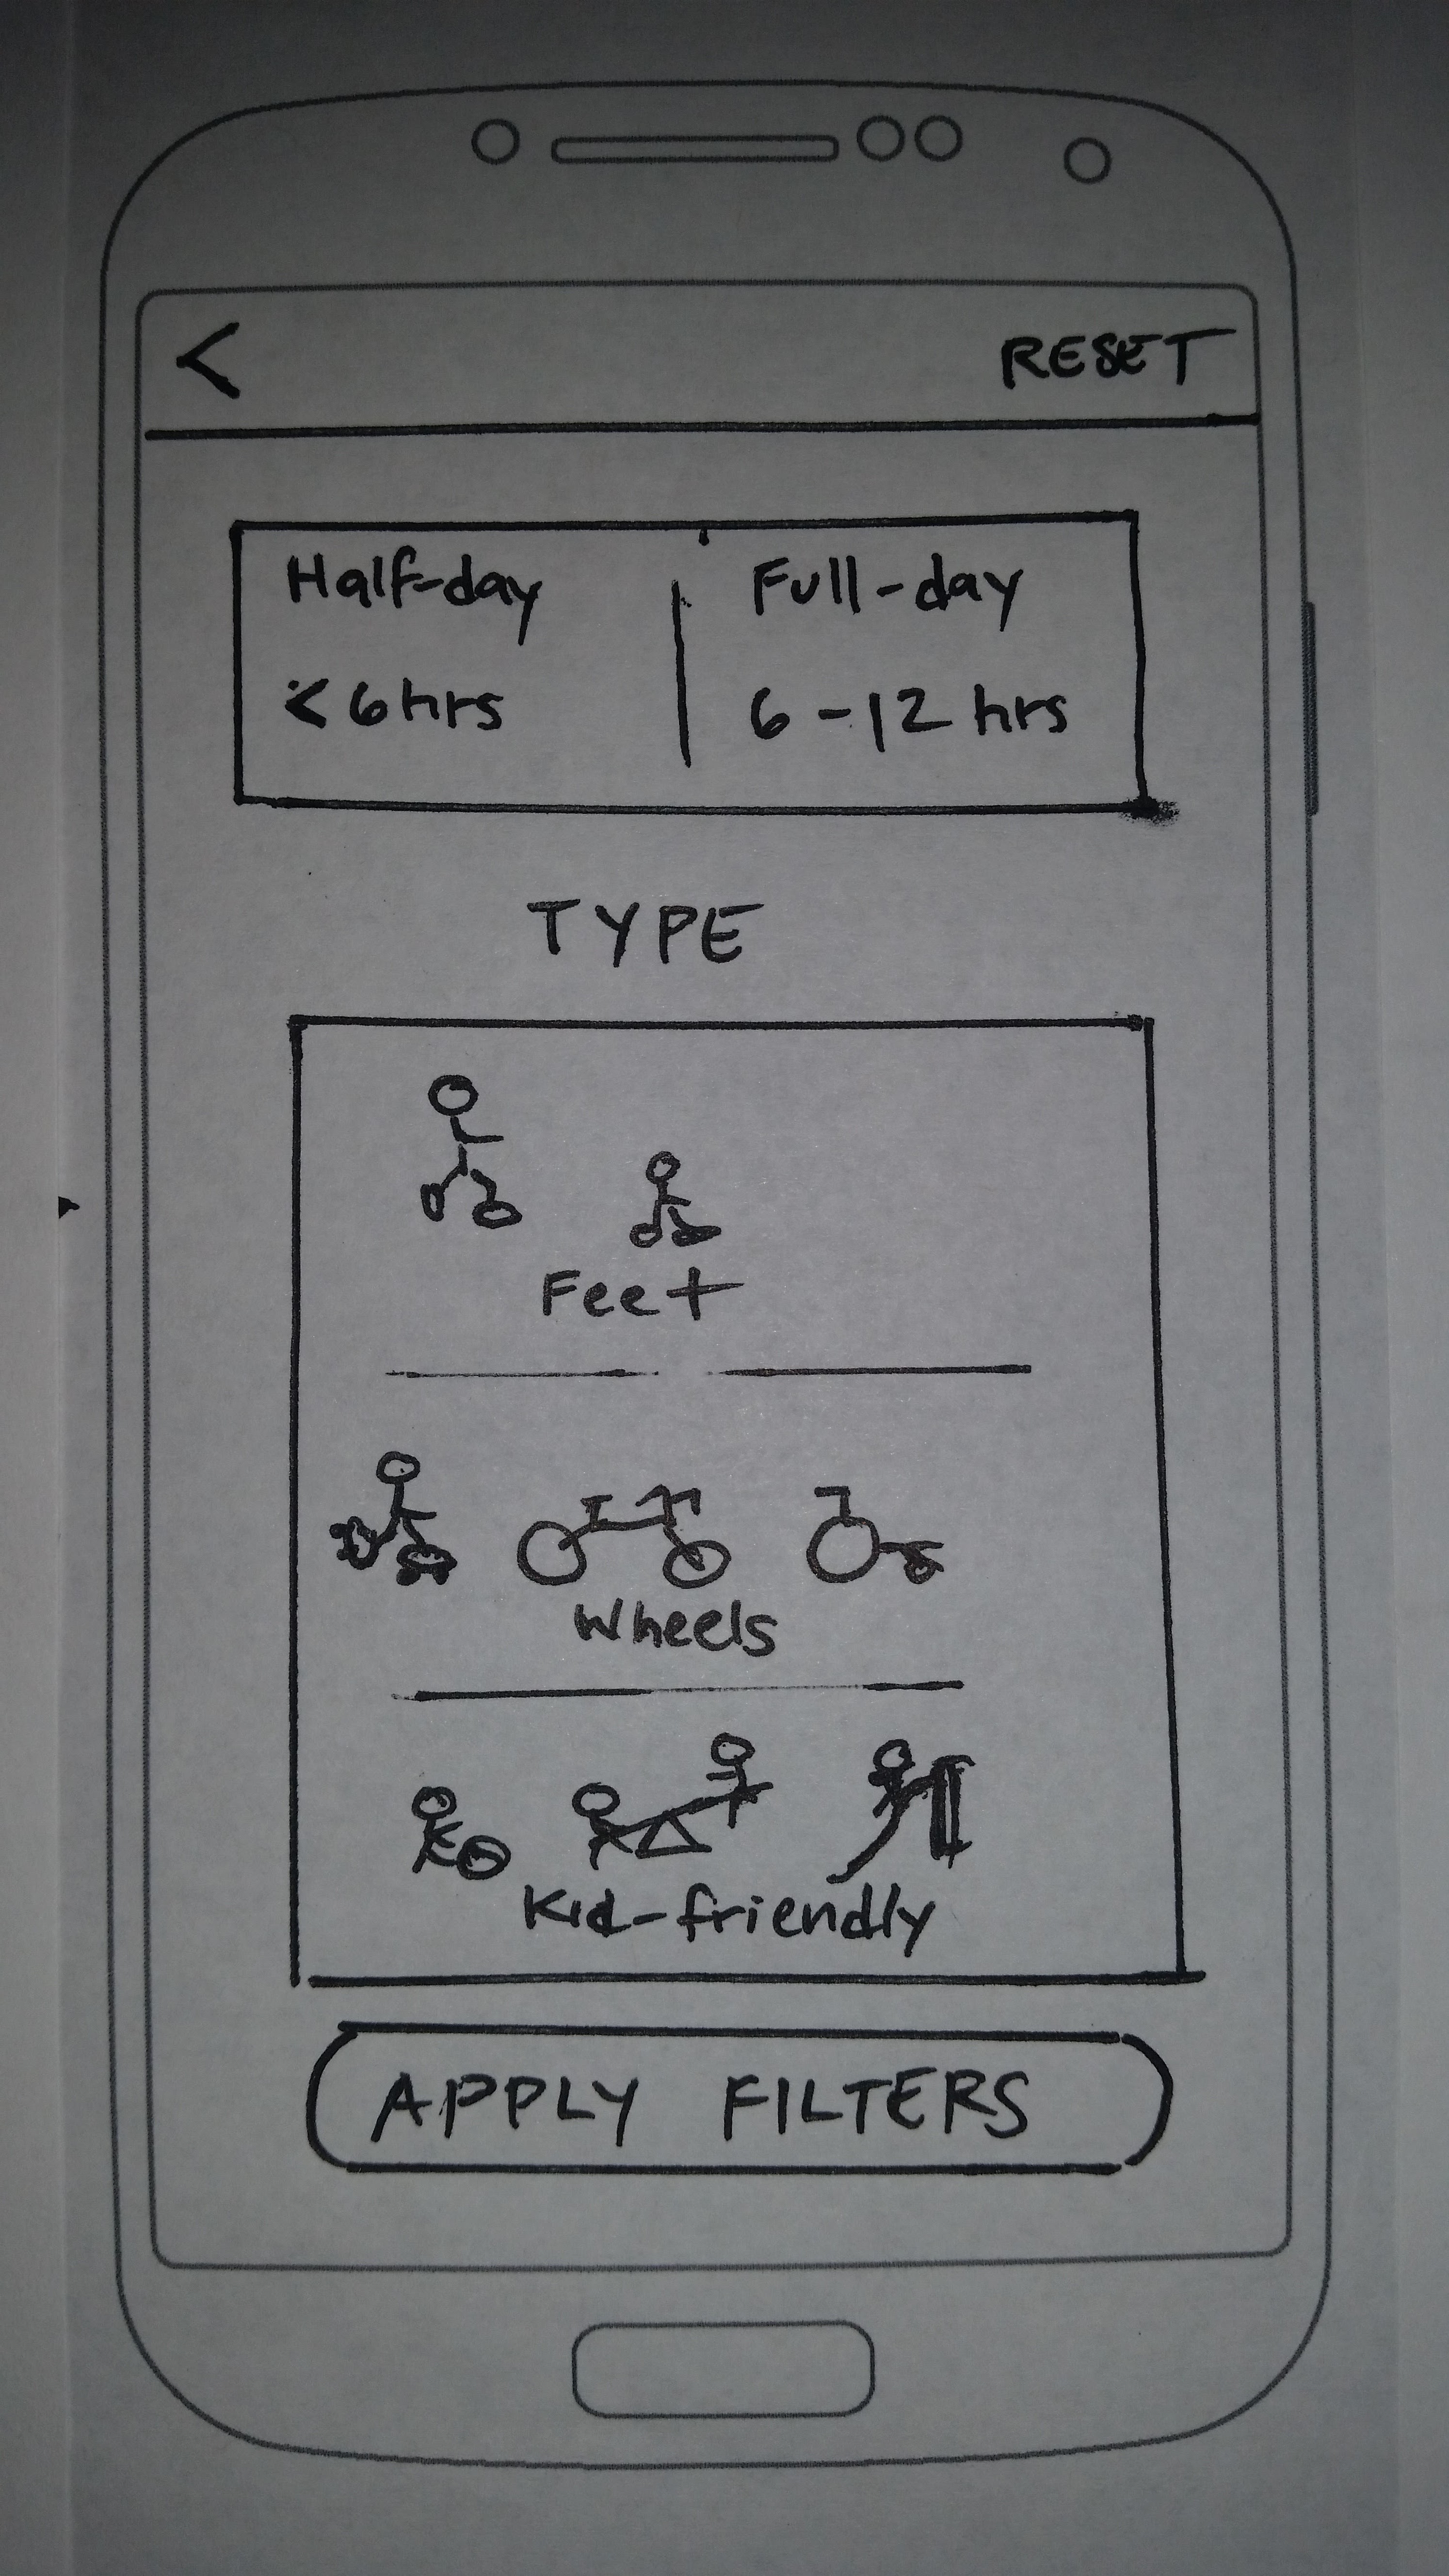 < RESET
Half-day Full-day
<6hrs 6-12 hrs
TYPE
Feet
Wheels
Kid-friendly
APPLY FILTERS